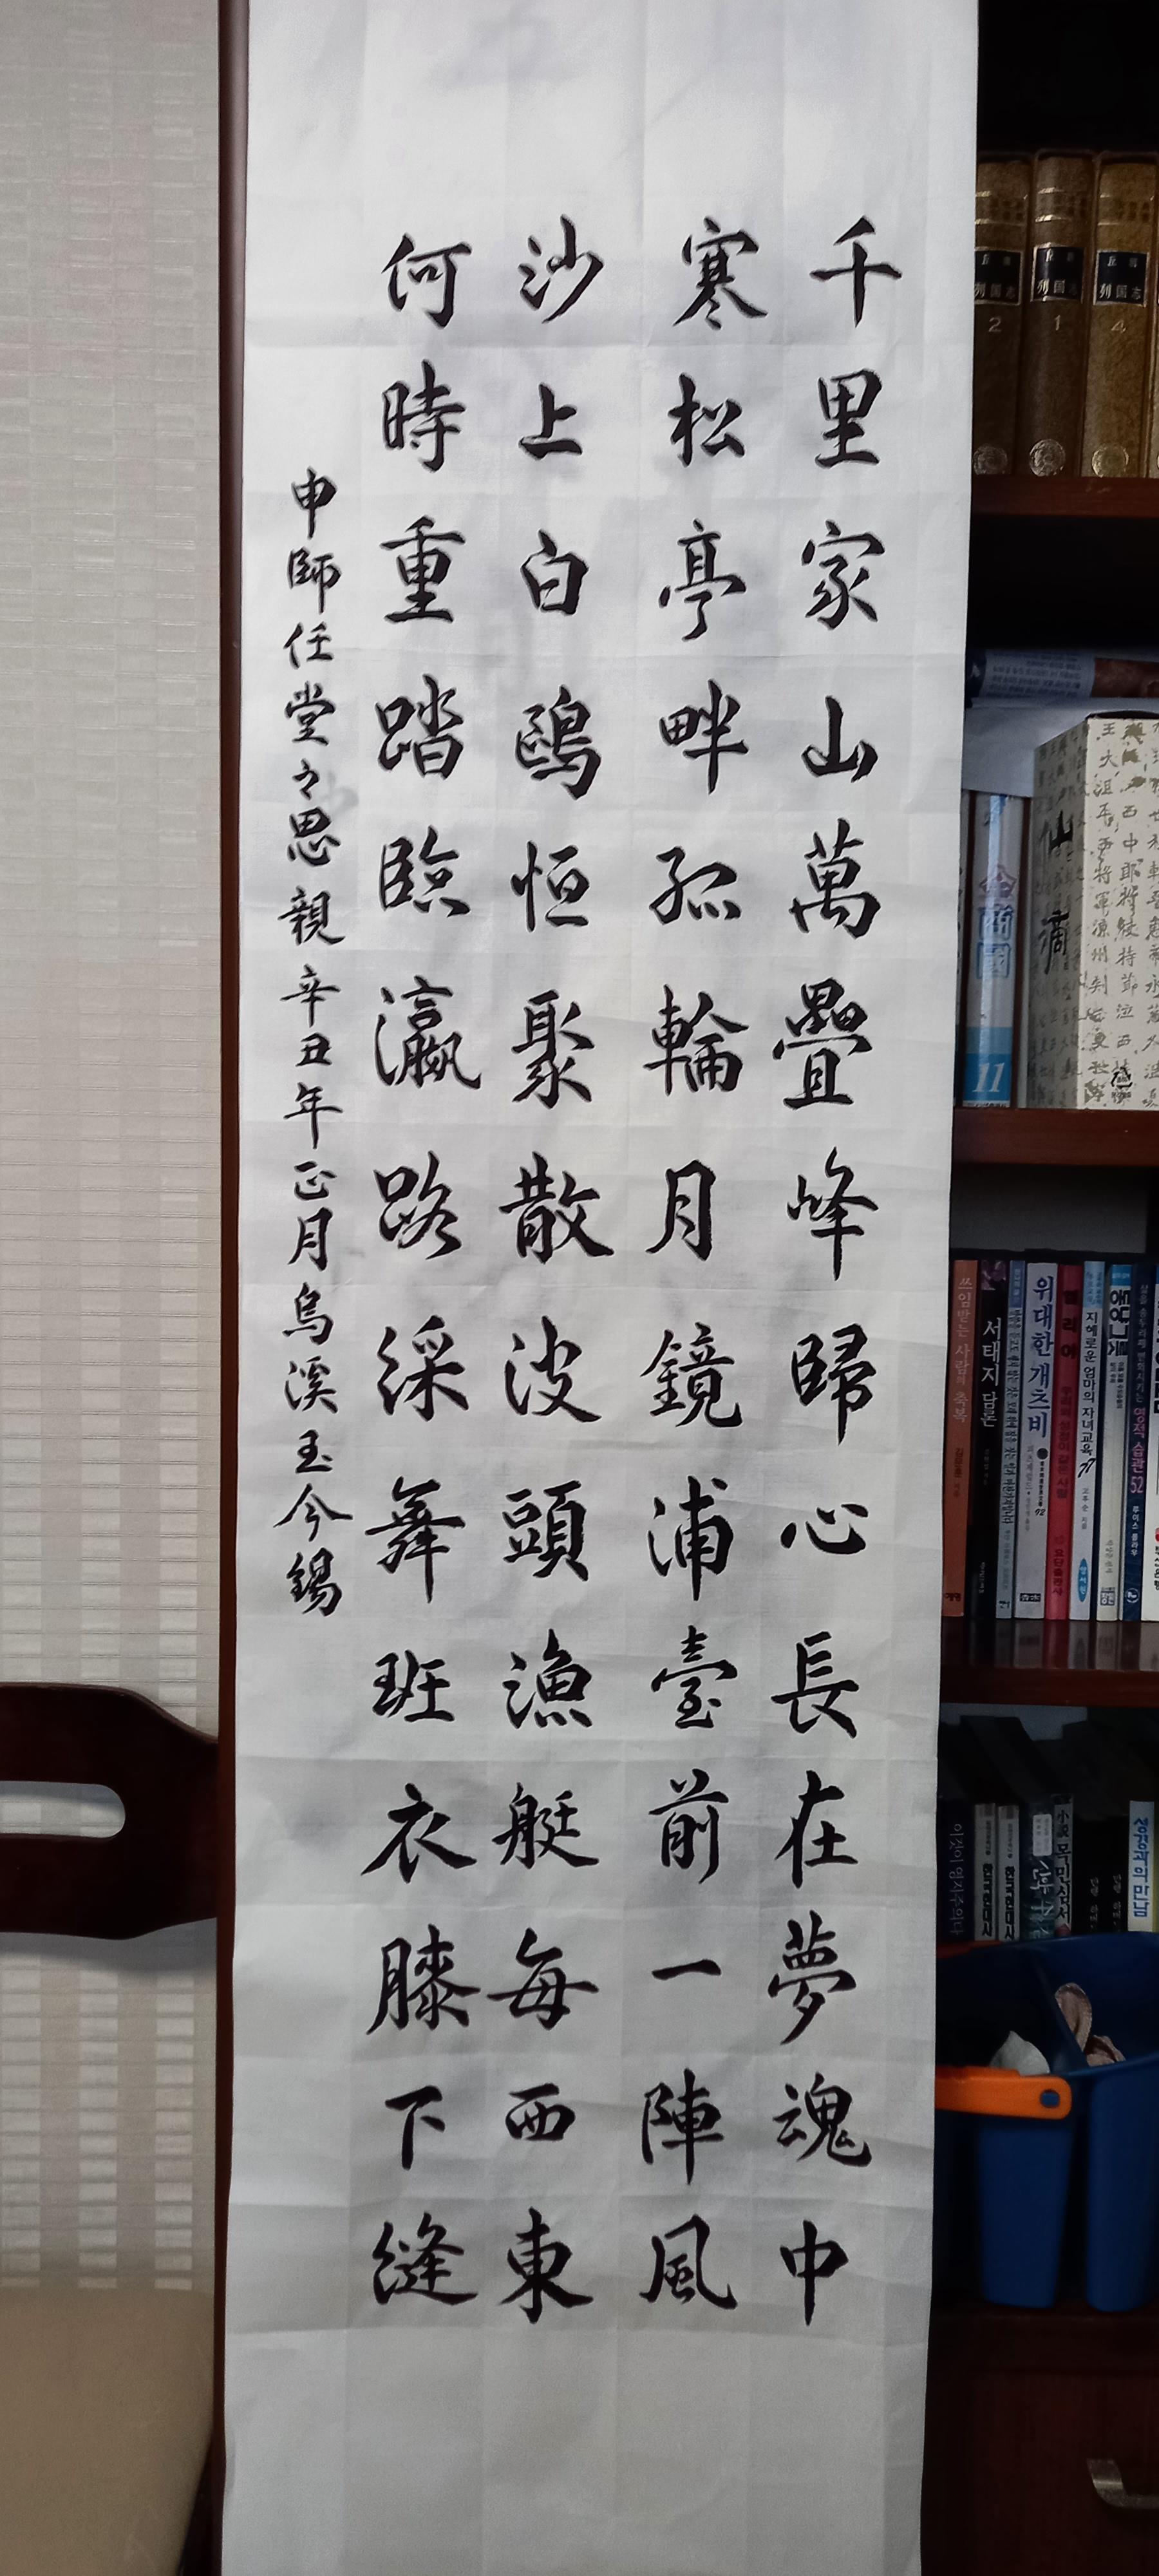 千里家山萬疊峰歸心長在夢魂中
寒松亭畔孤輪月鏡浦臺前一陣風
沙上白鷗恒聚散波頭漁艇每西東
何時重踏臨瀛路綵舞班衣膝下縫
申師任堂之思親 辛丑年正月烏溪玉今錫
列国志
2
列国志
1
列国志
4
11
쓰임받는 사람의 축복
서태지 담론
위대한 개츠비
지혜로운 엄마의 자녀교육
영적 습관 52
이것이 영지주의다
한국현대사
한국현대사
小說 목민심서
성경과의 만남